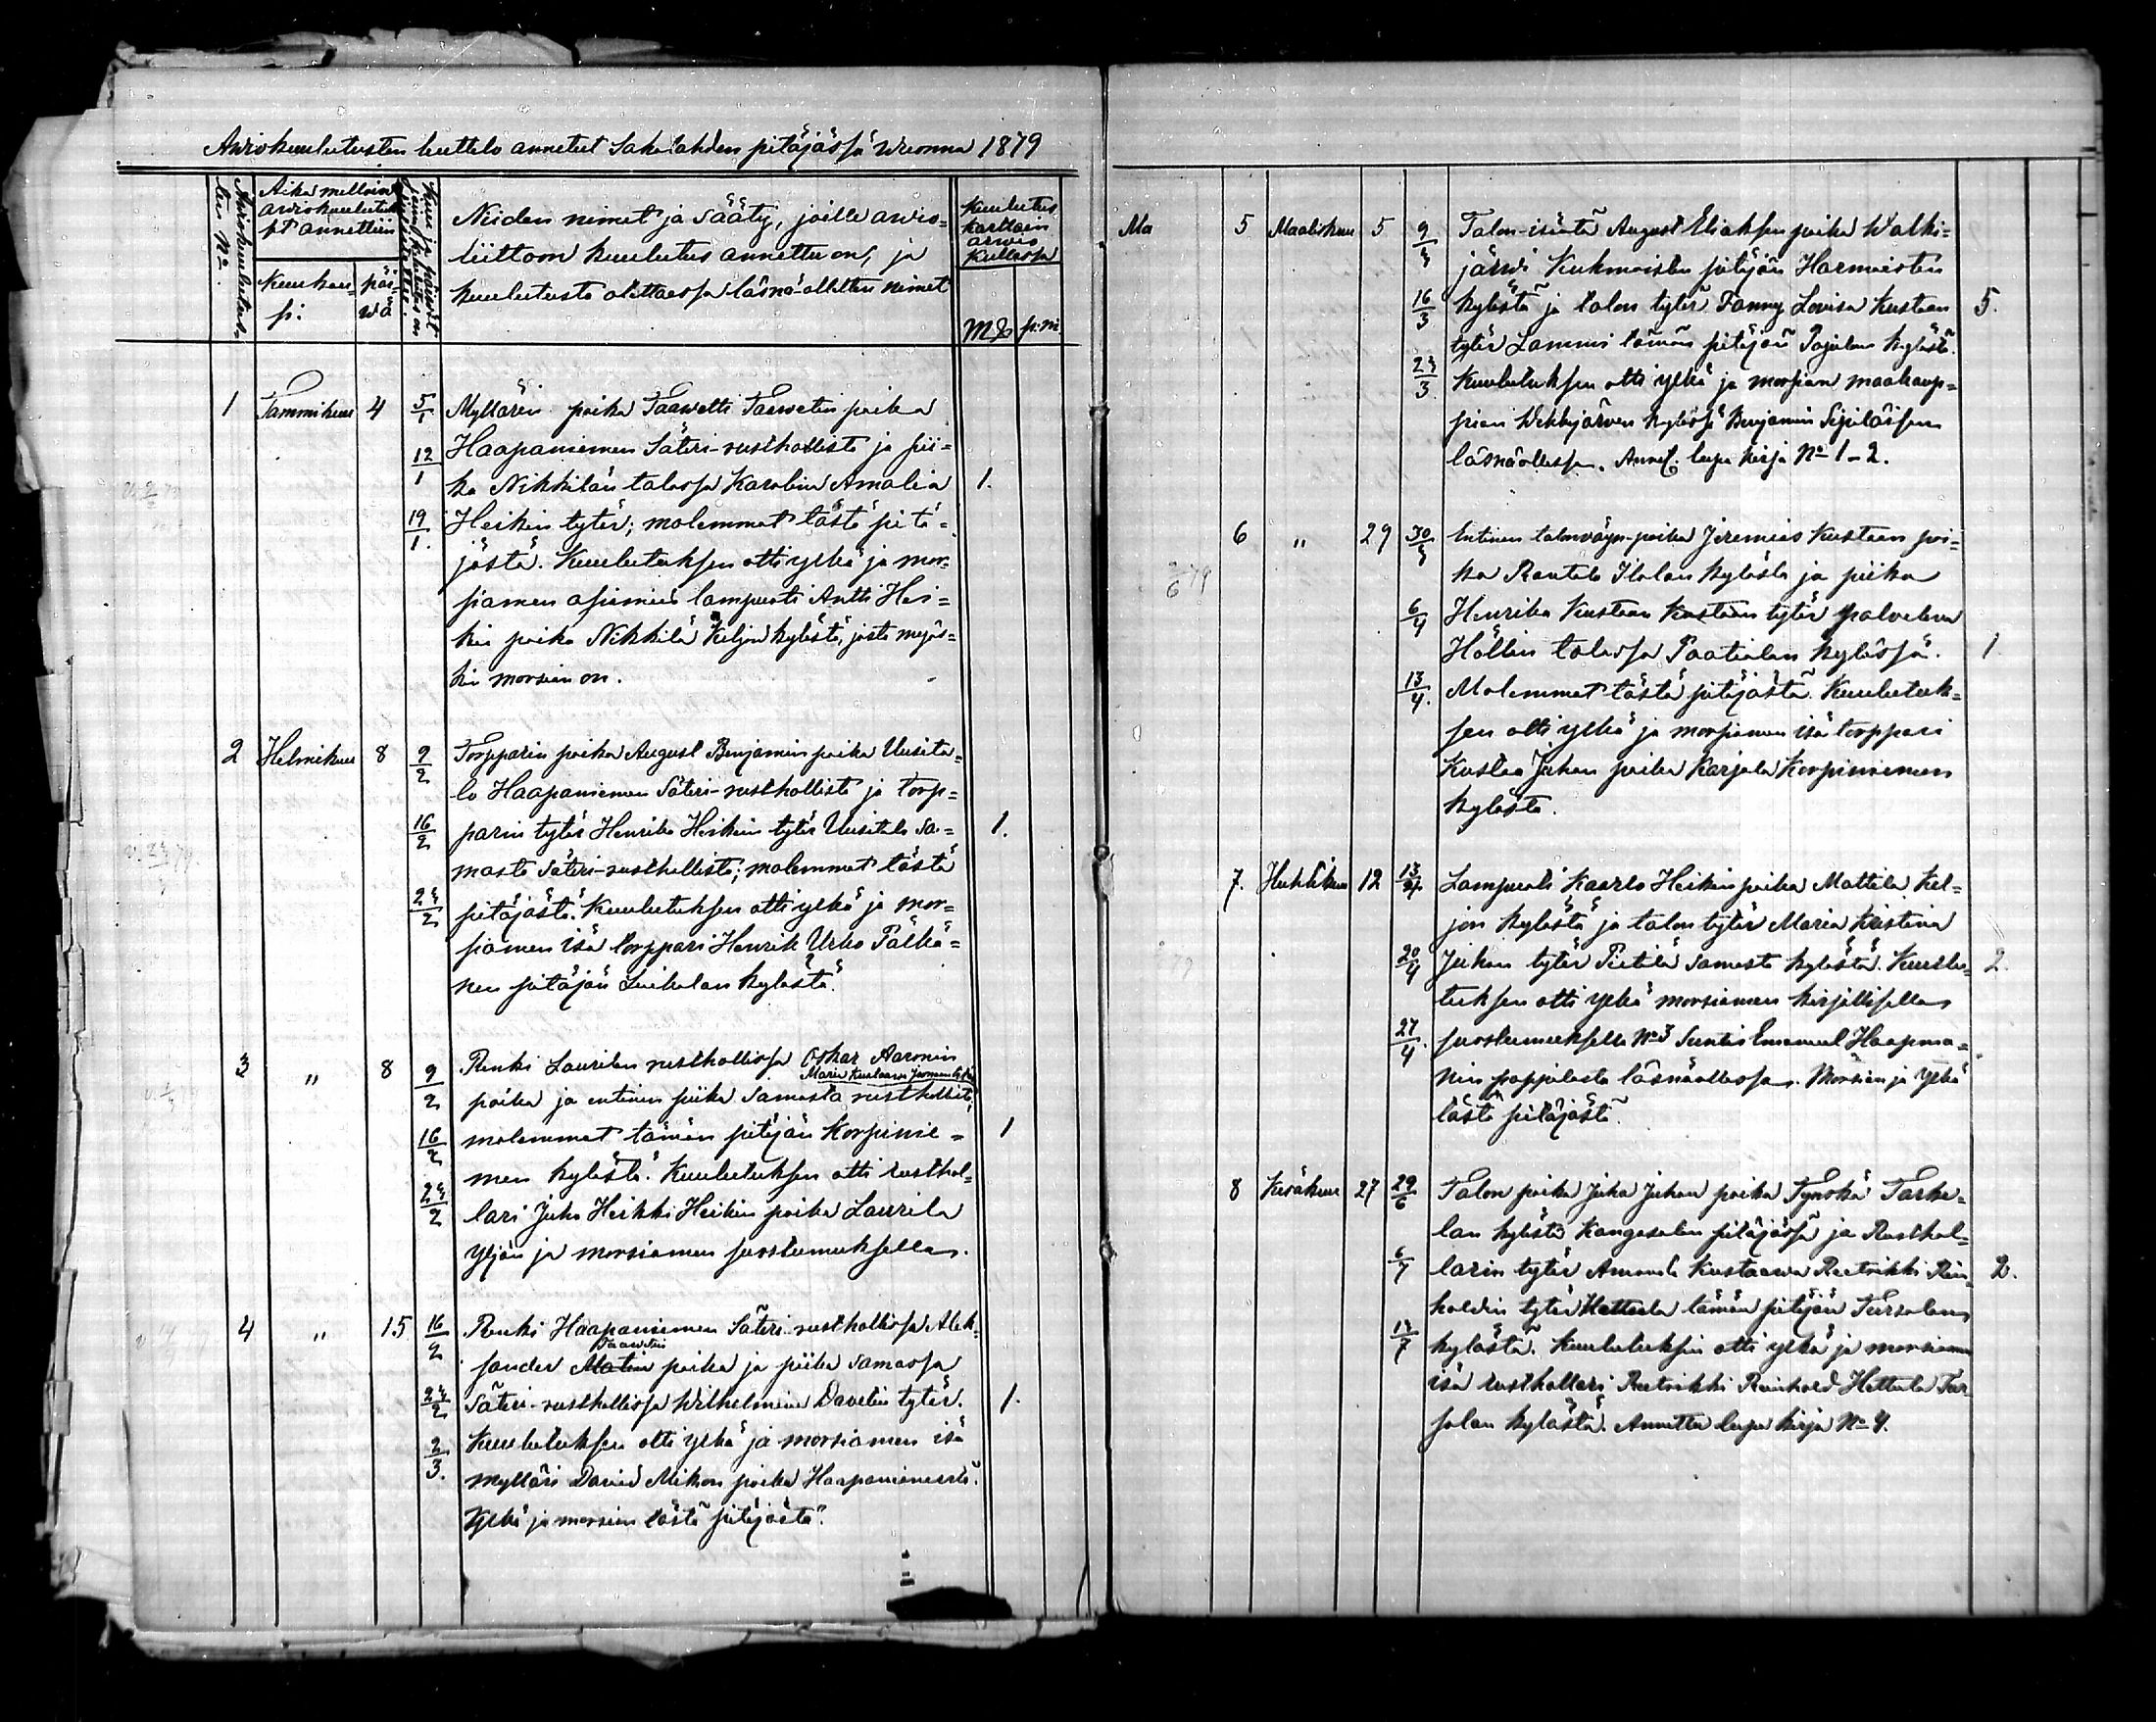 Awiokuulutusten luettelo annetut Sahalahden pitäjässä wuonna 1879
Awiokuulutusten No.
Aika milloin awiokuulutukset annettiin
Kuukausi.
päiwä
Niiden nimet ja sääty, joille awio-
liittoon kuulutus annettu on, ja
kuulutusta otettaessa läsnä olletten nimet
Kuulutus
M
p.
1 Tammikuu 4 5/1 Myllärin poika Taawetti Taawetin poika
12/1 Haapaniemen Säteri-rusthollista ja pii-
ka Nikkilän talossa Karolina Amalia 1.
19/1. Heikin tytär; molemmat tästä pitä-
jästä. Kuulutuksen otti ylkä ja mor-
siamen asiamies lampuoti Antti Hei-
kin poika Nikkilä Keljon kylästä, josta myös-
kin morsian on.
2 Helmikuu 8 9/2 Torpparin poika August Benjamin poika Uusita-
lo Haapaniemen Säteri-rusthollista ja torp-
16/2 parin tytär Henrika Heikin tytär Uusitalo sa- 1.
masta Säteri-rusthollista; molemmat tästä
23/2 pitäjästä. Kuulutuksen otti ylkä ja mor-
siamen isä torppari Henrik Urho Pälkä-
nen pitäjän Luikalan kylästä.
3 " 8 9/2 Renki Laurilan rusthollissa Oskar Aaronin
Maria Kustaawa Juomen tytär
poika ja entinen piika samasta rusthollista,
16/2 molemmat tämän pitäjän Korpinie- 1
men kylästä. Kuulutuksen otti rusthol-
23/2 lari Juho Heikki Heikin poika Laurila
Yljän ja morsiamen suostumuksella.
4 " 15 16/2 Renki Haapaniemen Säteri-rusthollissa Alek-
Taawetin
sander Matin poika ja piika samassa
23/2 Säteri-rusthollissa Wilhelmina Davetin tytär. 1.
Kuulutuksen otti ylkä ja morsiamen isä
2/3. mylläri David Mikon poika Haapaniemestä.
Ylkä ja morsian tästä pitäjästä.
Ma 5 Maaliskuu 5 9/3 Talon-isäntä August Eliaksen poika Walki-
järwi Kuhmoisten pitäjän Harmoisten
16/3 kylästä ja talon tytär Fanny Lovisa Kustaan 5.
tytär Lammi tämän pitäjän Pajulan kylästä.
23/3. Kuulutuksen otti ylkä ja morsian maakaup-
pian Wehkajärven kylässä Benjamin Sipiläisen
läsnäollessa. Annet. lupa kirja No 1-2.
6 " 29 30/3 Entinen talonväyn-poika Jeremias Kustaan poi-
ka Rantala Ilolan kylästä ja piika
6/4 Henrika Kustaan Kustaan tytär palveleva
Hällin talossa Paatialan kylässä. 1.
13/4. Molemmat tästä pitäjästä. Kuulutuk-
sen otti ylkä ja morsiamen isä torppari
Kustaa Juhan poika Karjala Korpiniemen
kylästä.
7. Huhtikuu 12 13/4 Lampuoti Kaarlo Heikin poika Mattila Kel-
jon kylästä ja talon tytär Maria Kristina
20/4 Juhan tytär Pietilä samasta kylästä. Kuulu- 2.
tuksen otti ylkä morsiamen kirjallisella
27/4. suostumuksella No 3 Suntio Emanuel Haapma-
nin pappilasta läsnäollessa. Morsian ja Ylkä
tästä pitäjästä.
8 Kesäkuu 27 29/6 Talon poika Juha Juhan poika Tynskä Tarke-
lan kylästä Kangasalan pitäjässä ja Rusthol-
6/7 larin tytär Amanda Kustaawa Reetrikki Rein- 2.
holdin tytär Hettula tämän pitäjän Tursolan
13/7 kylästä. Kuulutuksen otti ylkä ja morsiamen
isä rusthollari Reetrikki Reinhold Hettula Tur-
solan kylästä. Annettu lupa kirja No 4.